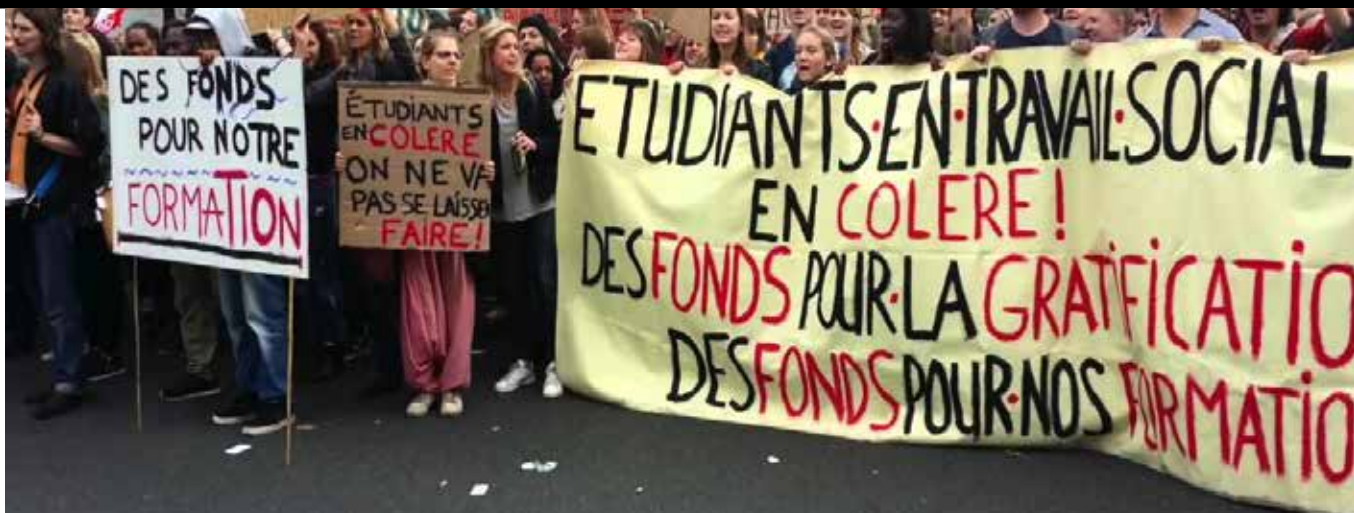 DES FONDS
POUR NOTRE
FORMATION
ÉTUDIANTS
EN COLERE
ON NE VA
PAS SE LAISSER
FAIRE !
ETUDIANTS•EN•TRAVAIL•SOCIAL
EN COLERE !
DES FONDS POUR•LA GRATiFiCATiO
DES FONDS POUR•NOS FORMATIO